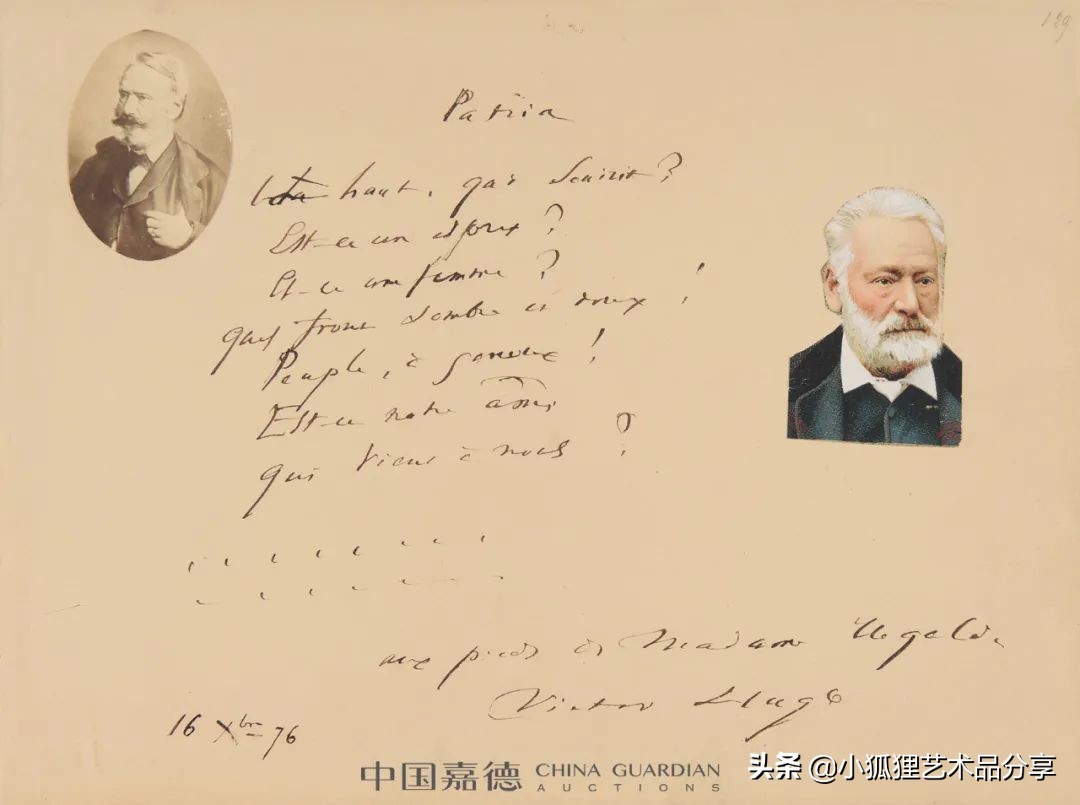 129
Patria
Là haut, qui sourit ?
Est-ce un esprit ?
Est-ce une femme ?
quel front sombre et doux !
Peuple, à genoux !
Est-ce notre âme
qui vient à nous ?
aux pieds de Madame Ugalde
Victor Hugo
16 Xbre 76
中国嘉德 CHINA GUARDIAN AUCTIONS
头条 @小狐狸艺术品分享